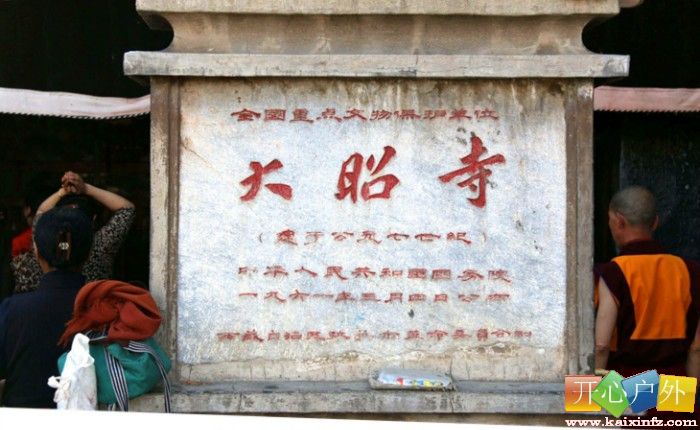 全国重点文物保护单位
大昭寺
(建于公元七世纪)
中华人民共和国国务院
一九六一年三月四日公布
开心户外
www.kaixinfz.com